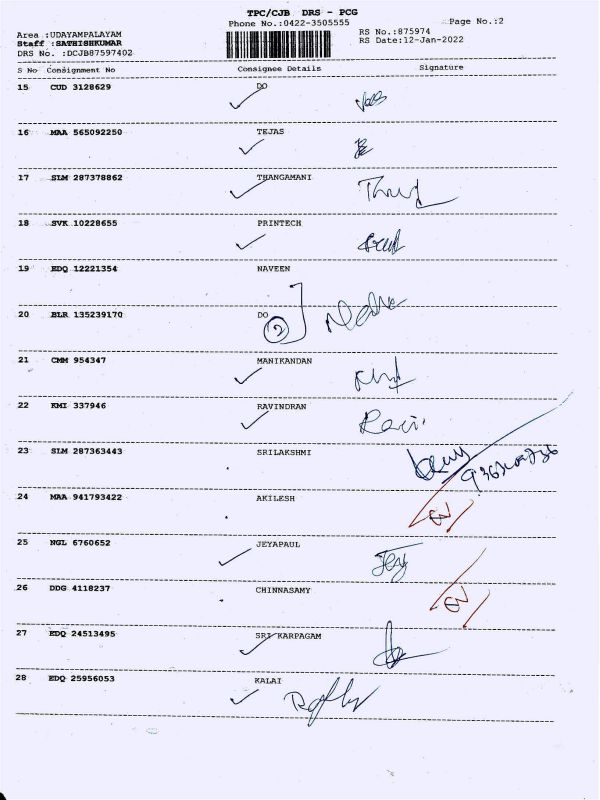 TPC/CJB DRS - PCG
Phone No.:0422-3505555
Page No.:2
Area :UDAYAMPALAYAM
RS No.:875974
Staff :SATHISHKUMAR
RS Date:12-Jan-2022
DRS No. :DCJB87597402
S No Consignment No Consignee Details Signature
15 CUD 3128629 DO
16 MAA 565092250 TEJAS
17 SLM 287378862 THANGAMANI
18 SVK 10228655 PRINTECH
19 EDQ 12221354 NAVEEN
20 BLR 135239170 DO
2
21 CMM 954347 MANIKANDAN
22 KMI 337946 RAVINDRAN
Ravi
23 SLM 287363443 SRILAKSHMI
24 MAA 941793422 AKILESH
25 NGL 6760652 JEYAPAUL
Jey
26 DDG 4118237 CHINNASAMY
27 EDQ 24513495 SRI KARPAGAM
28 EDQ 25956053 KALAI